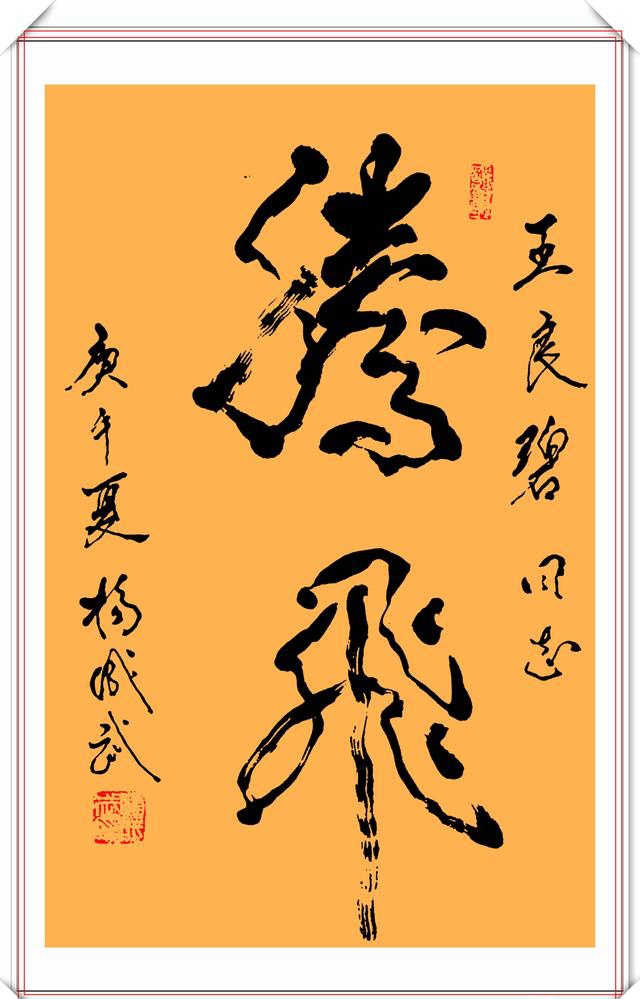 王良碧同志
腾飞
庚午夏杨成武